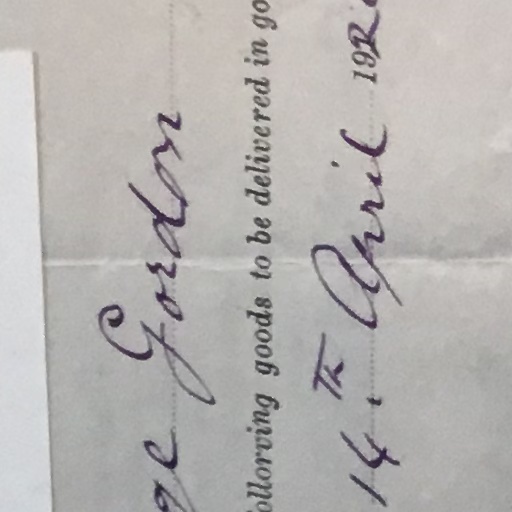 ge Gordon
ollorving goods to be delivered in go
14.Th April 192